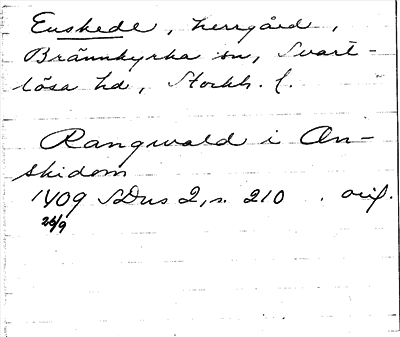 Enskede, herrgård,
Brännkyrka sn, Svart-
lösa hd, Stockh. l.
Rangwald i Än-
skidom
1409 SDns 2, s. 210 . orig.
26/9